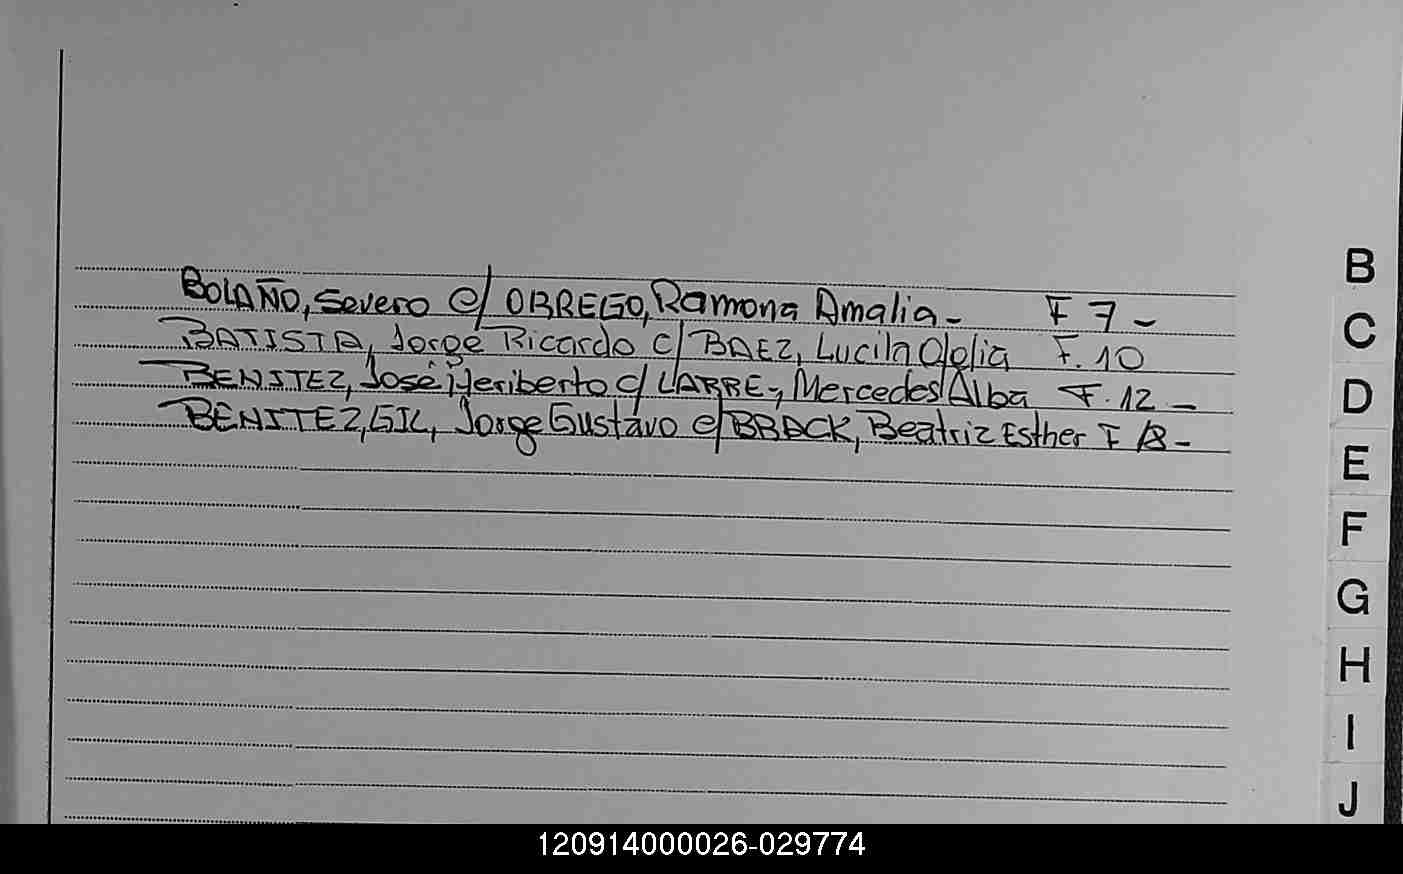 BOLAÑO, Severo c/ OBREGO, Ramona Amalia - F 7 -
BATISTA, Jorge Ricardo c/ BAEZ, Lucila Odelia F. 10
BENITEZ, José Heriberto c/ LARRE, Mercedes Alba F. 12 -
BENITEZ, GIL, Jorge Gustavo c/ BRACK, Beatriz Esther F 18 -
B
C
D
E
F
G
H
I
J
120914000026-029774